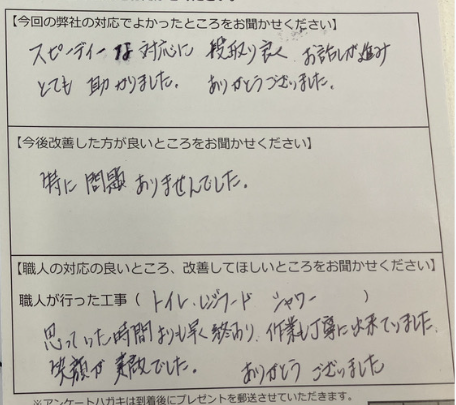 【今回の弊社の対応でよかったところをお聞かせください】
スピーディーな対応に 段取り良く お話しが進み
とても 助かりました。 ありがとうございました。
【今後改善した方が良いところをお聞かせください】
特に 問題 ありませんでした。
【職人の対応の良いところ、改善してほしいところをお聞かせください】
職人が行った工事（ トイレ・レンジフード シャワー ）
思っていた時間よりも早く終わり、作業も丁寧に出来てました。
笑顔が 素敵でした。 ありがとう ございました
※アンケートハガキは到着後にプレゼントを郵送させていただきます。